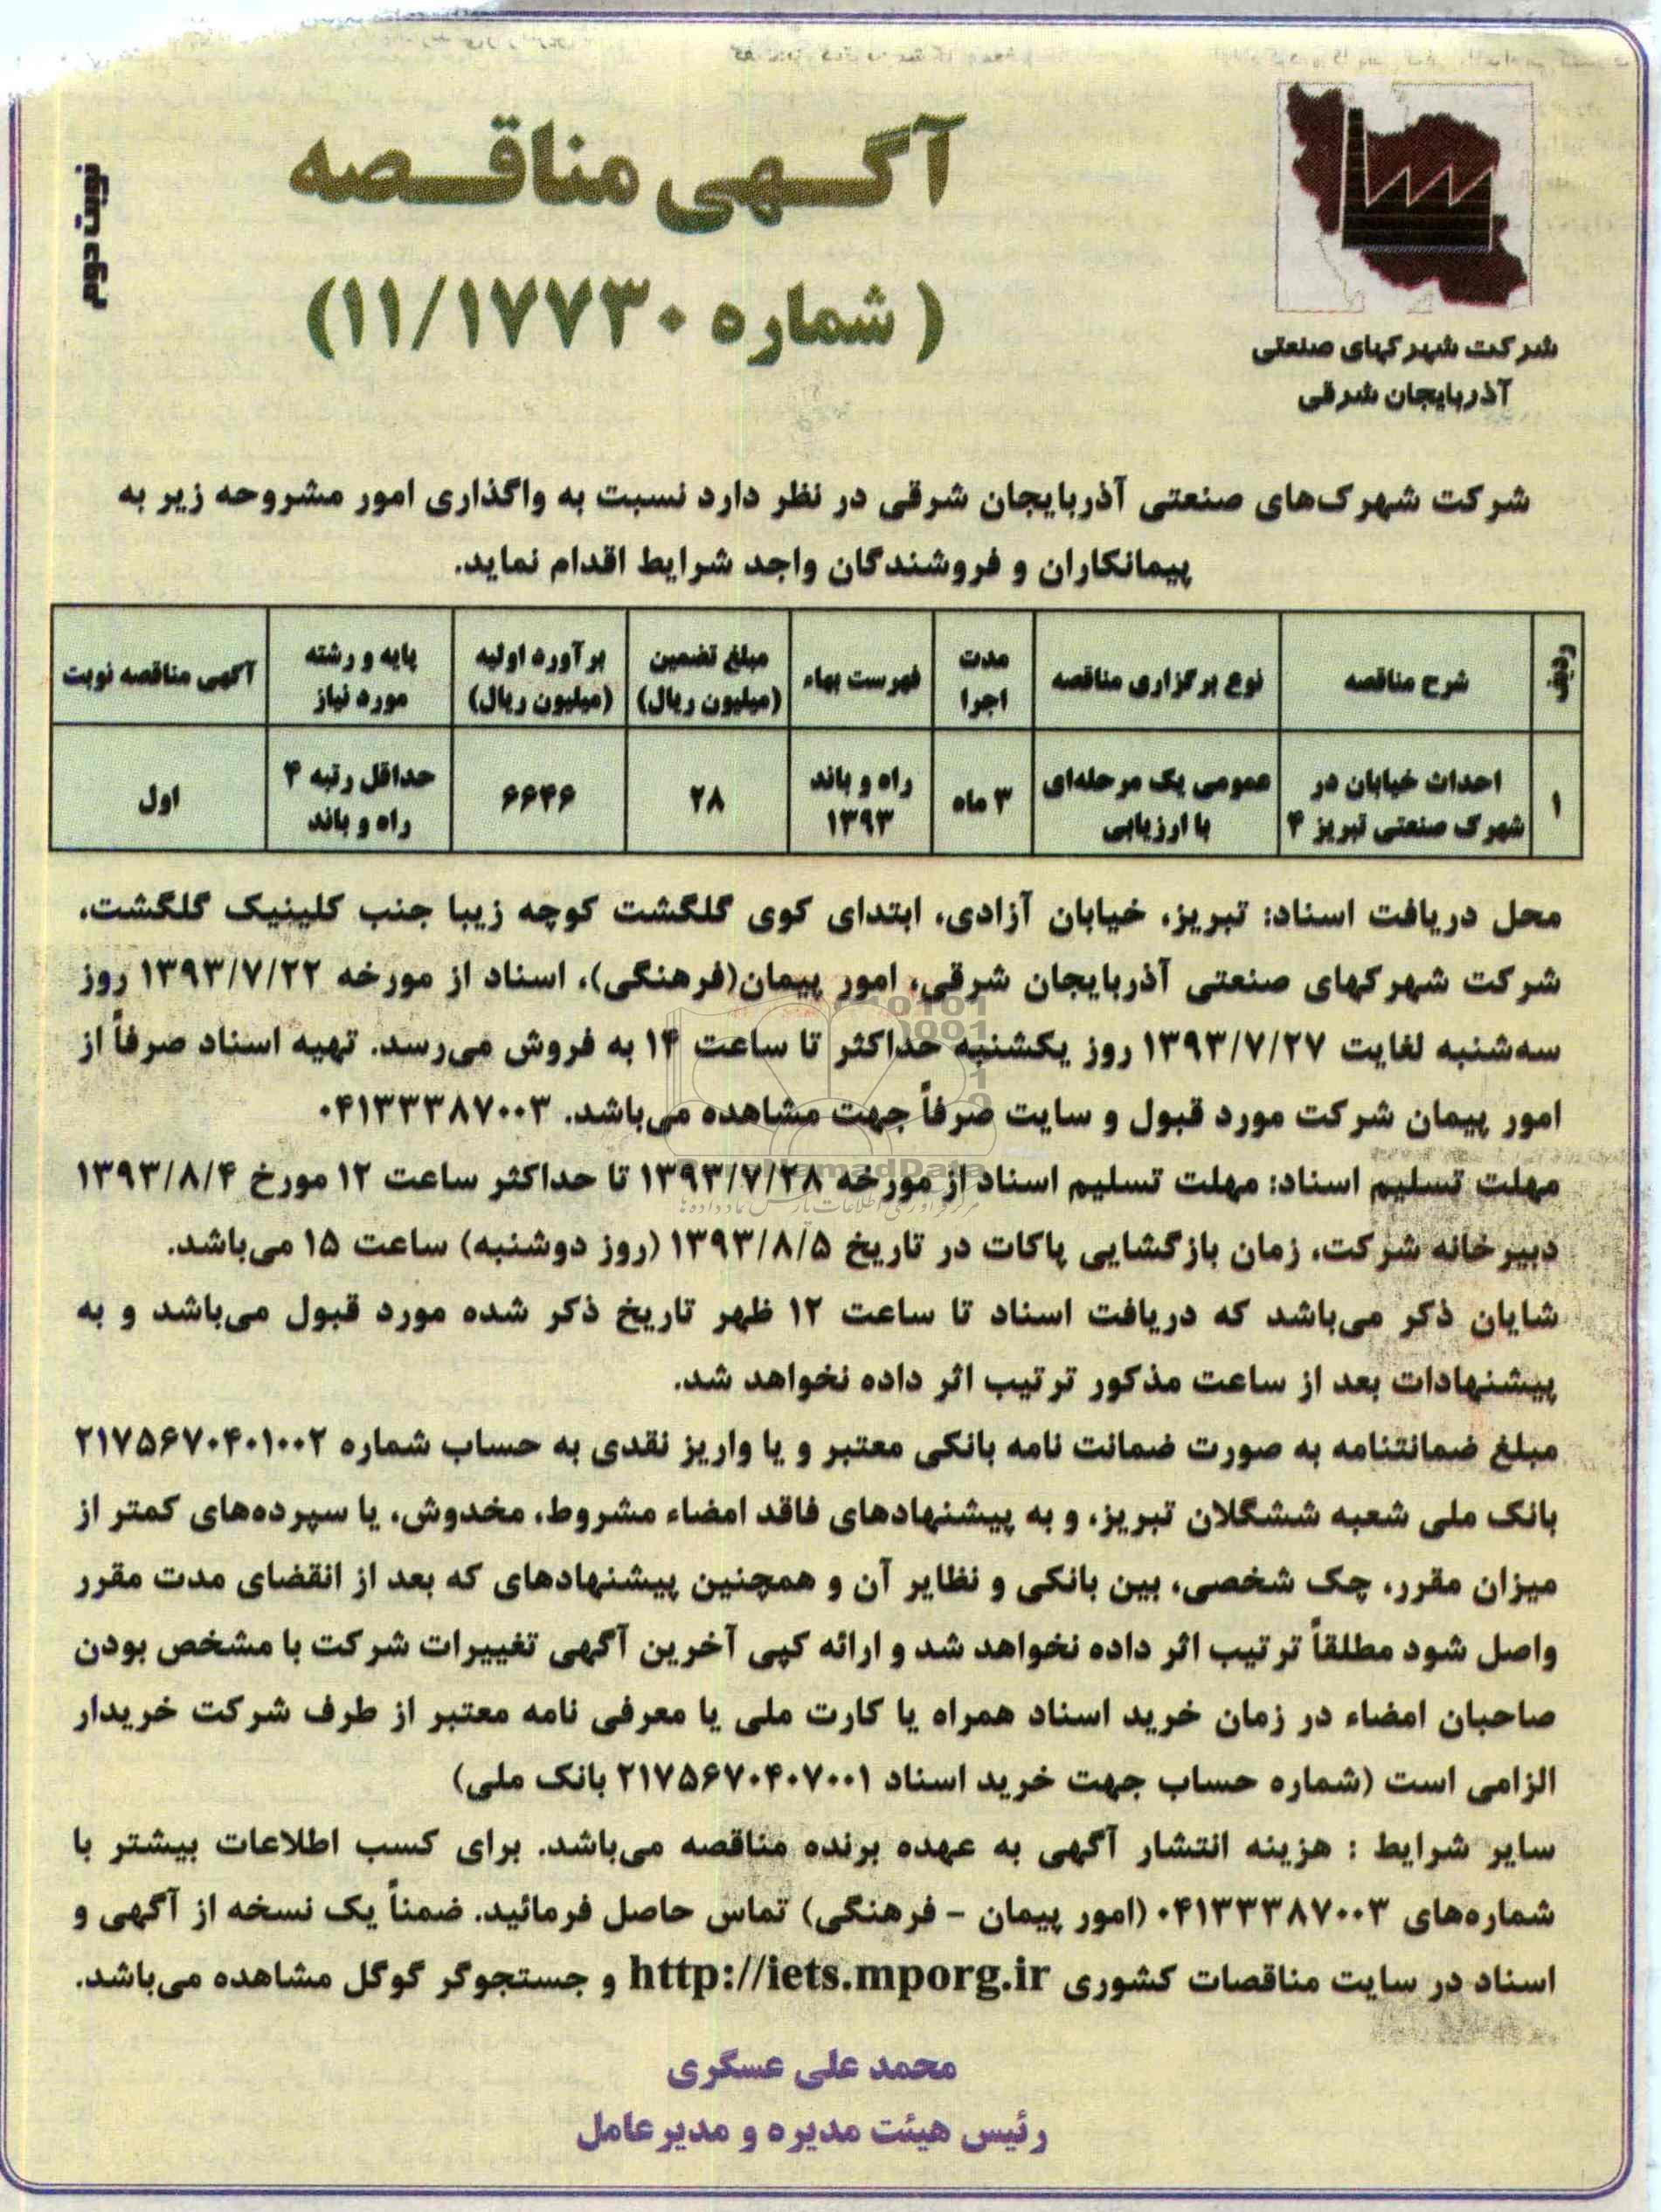 آگهی مناقصه
(شماره ۱۱/۱۷۷۳۰)
نوبت دوم
شرکت شهرکهای صنعتی
آذربایجان شرقی
شرکت شهرک‌های صنعتی آذربایجان شرقی در نظر دارد نسبت به واگذاری امور مشروحه زیر به
پیمانکاران و فروشندگان واجد شرایط اقدام نماید.
ردیف | شرح مناقصه | نوع برگزاری مناقصه | مدت اجرا | فهرست بهاء | مبلغ تضمین (میلیون ریال) | برآورد اولیه (میلیون ریال) | پایه و رشته مورد نیاز | آگهی مناقصه نوبت
۱ | احداث خیابان در شهرک صنعتی تبریز ۴ | عمومی یک مرحله‌ای با ارزیابی | ۳ ماه | راه و باند ۱۳۹۳ | ۲۸ | ۶۶۴۶ | حداقل رتبه ۴ راه و باند | اول
محل دریافت اسناد: تبریز، خیابان آزادی، ابتدای کوی گلگشت کوچه زیبا جنب کلینیک گلگشت،
شرکت شهرکهای صنعتی آذربایجان شرقی، امور پیمان(فرهنگی)، اسناد از مورخه ۱۳۹۳/۷/۲۲ روز
سه‌شنبه لغایت ۱۳۹۳/۷/۲۷ روز یکشنبه حداکثر تا ساعت ۱۴ به فروش می‌رسد. تهیه اسناد صرفاً از
امور پیمان شرکت مورد قبول و سایت صرفاً جهت مشاهده می‌باشد. ۰۴۱۳۳۳۸۷۰۰۳
مهلت تسلیم اسناد: مهلت تسلیم اسناد از مورخه ۱۳۹۳/۷/۲۸ تا حداکثر ساعت ۱۲ مورخ ۱۳۹۳/۸/۴
دبیرخانه شرکت، زمان بازگشایی پاکات در تاریخ ۱۳۹۳/۸/۵ (روز دوشنبه) ساعت ۱۵ می‌باشد.
شایان ذکر می‌باشد که دریافت اسناد تا ساعت ۱۲ ظهر تاریخ ذکر شده مورد قبول می‌باشد و به
پیشنهادات بعد از ساعت مذکور ترتیب اثر داده نخواهد شد.
مبلغ ضمانتنامه به صورت ضمانت نامه بانکی معتبر و یا واریز نقدی به حساب شماره ۲۱۷۵۶۷۰۴۰۱۰۰۲
بانک ملی شعبه ششگلان تبریز، و به پیشنهادهای فاقد امضاء مشروط، مخدوش، یا سپرده‌های کمتر از
میزان مقرر، چک شخصی، بین بانکی و نظایر آن و همچنین پیشنهادهای که بعد از انقضای مدت مقرر
واصل شود مطلقاً ترتیب اثر داده نخواهد شد و ارائه کپی آخرین آگهی تغییرات شرکت با مشخص بودن
صاحبان امضاء در زمان خرید اسناد همراه یا کارت ملی یا معرفی نامه معتبر از طرف شرکت خریدار
الزامی است (شماره حساب جهت خرید اسناد ۲۱۷۵۶۷۰۴۰۷۰۰۱ بانک ملی)
سایر شرایط : هزینه انتشار آگهی به عهده برنده مناقصه می‌باشد. برای کسب اطلاعات بیشتر با
شماره‌های ۰۴۱۳۳۳۸۷۰۰۳ (امور پیمان - فرهنگی) تماس حاصل فرمائید. ضمناً یک نسخه از آگهی و
اسناد در سایت مناقصات کشوری http://iets.mporg.ir و جستجوگر گوگل مشاهده می‌باشد.
محمد علی عسگری
رئیس هیئت مدیره و مدیرعامل